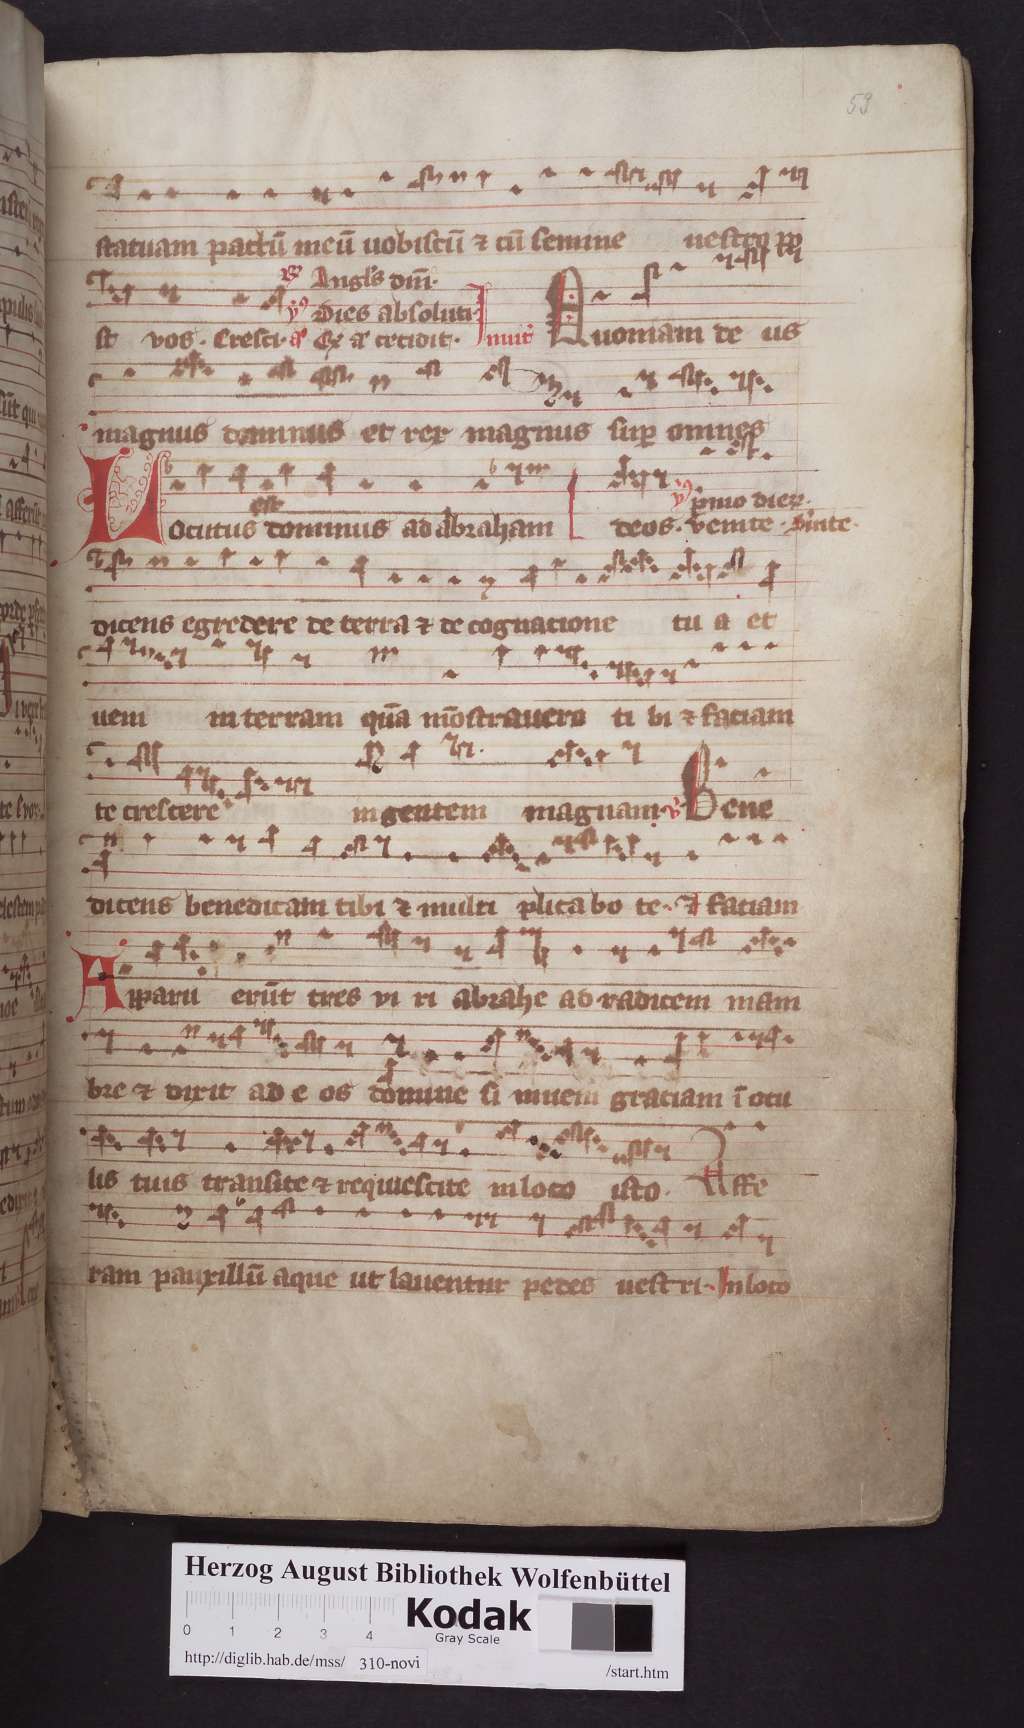 59
statuam pactū meū uobiscū ⁊ cū semine uestro pꝰ
℟ Angl's dn̄i.
℣ Dies absoluti
st vos. Cresci. Et cecidit. Inuit Quoniam de us
magnus dominus et rex magnus sup omnes
est
℣ pmo dier.
Locutus dominus ad abraham deos. venite. Venite.
dicens egredere de terra ⁊ de cognatione tu a et
ueni in terram quā mōstrauero ti bi ⁊ faciam
te crescere in gentem magnam ℣ Bene
dicens benedicam tibi ⁊ multi plicabo te. Et faciam
Apparu erūt tres vi ri abrahe ad radicem mam
bre ⁊ dixit ad e os domine si inueni graciam ī ocu
lis tuis transite ⁊ requiescite in loco isto. Affe
ram pauxillū aque ut lauentur pedes uest ri. In loco
Herzog August Bibliothek Wolfenbüttel
0 1 2 3 4
Kodak
Gray Scale
http://diglib.hab.de/mss/ 310-novi /start.htm